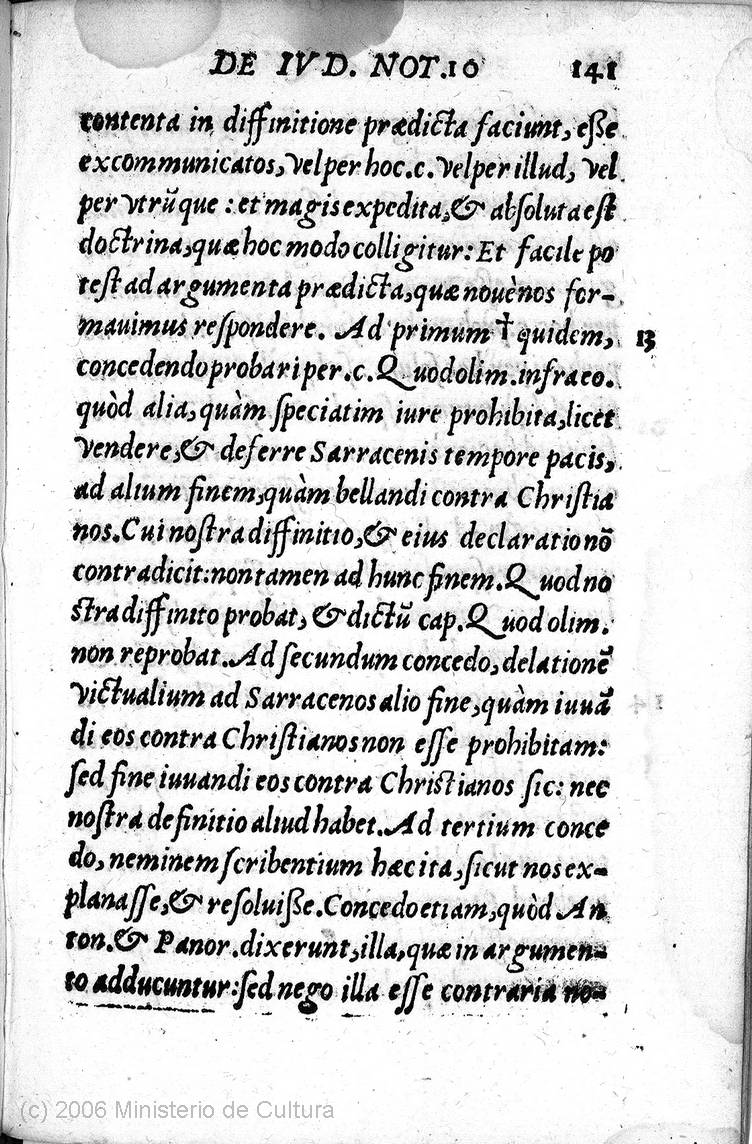 DE IVD. NOT.10 141
contenta in diffinitione prædicta faciunt, eſſe
excommunicatos, vel per hoc.c. vel per illud, vel
per vtrũque : et magis expedita, & abſoluta eſt
doctrina, quæ hoc modo colligitur: Et facile po
teſt ad argumenta prædicta, quæ nouènos for-
mauimus reſpondere. Ad primum † quidem, 13
concedendo probari per.c. Quod olim. infra eo.
quòd alia, quàm ſpeciatim iure prohibita, licet
vendere, & deferre Sarracenis tempore pacis,
ad alium finem, quàm bellandi contra Chriſtia
nos. Cui noſtra diffinitio, & eius declaratio nõ
contradicit: non tamen ad hunc finem. Quod no
ſtra diffinito probat, & dictũ cap. Quod olim.
non reprobat. Ad ſecundum concedo, delationẽ
victualium ad Sarracenos alio fine, quàm iuuã
di eos contra Chriſtianos non eſſe prohibitam:
ſed fine iuuandi eos contra Chriſtianos ſic: nec
noſtra definitio aliud habet. Ad tertium conce
do, neminem ſcribentium hæc ita, ſicut nos ex-
planaſſe, & reſoluiſſe. Concedo etiam, quòd An
ton. & Panor. dixerunt, illa, quæ in argumen-
to adducuntur: ſed nego illa eſſe contraria no-
(c) 2006 Ministerio de Cultura